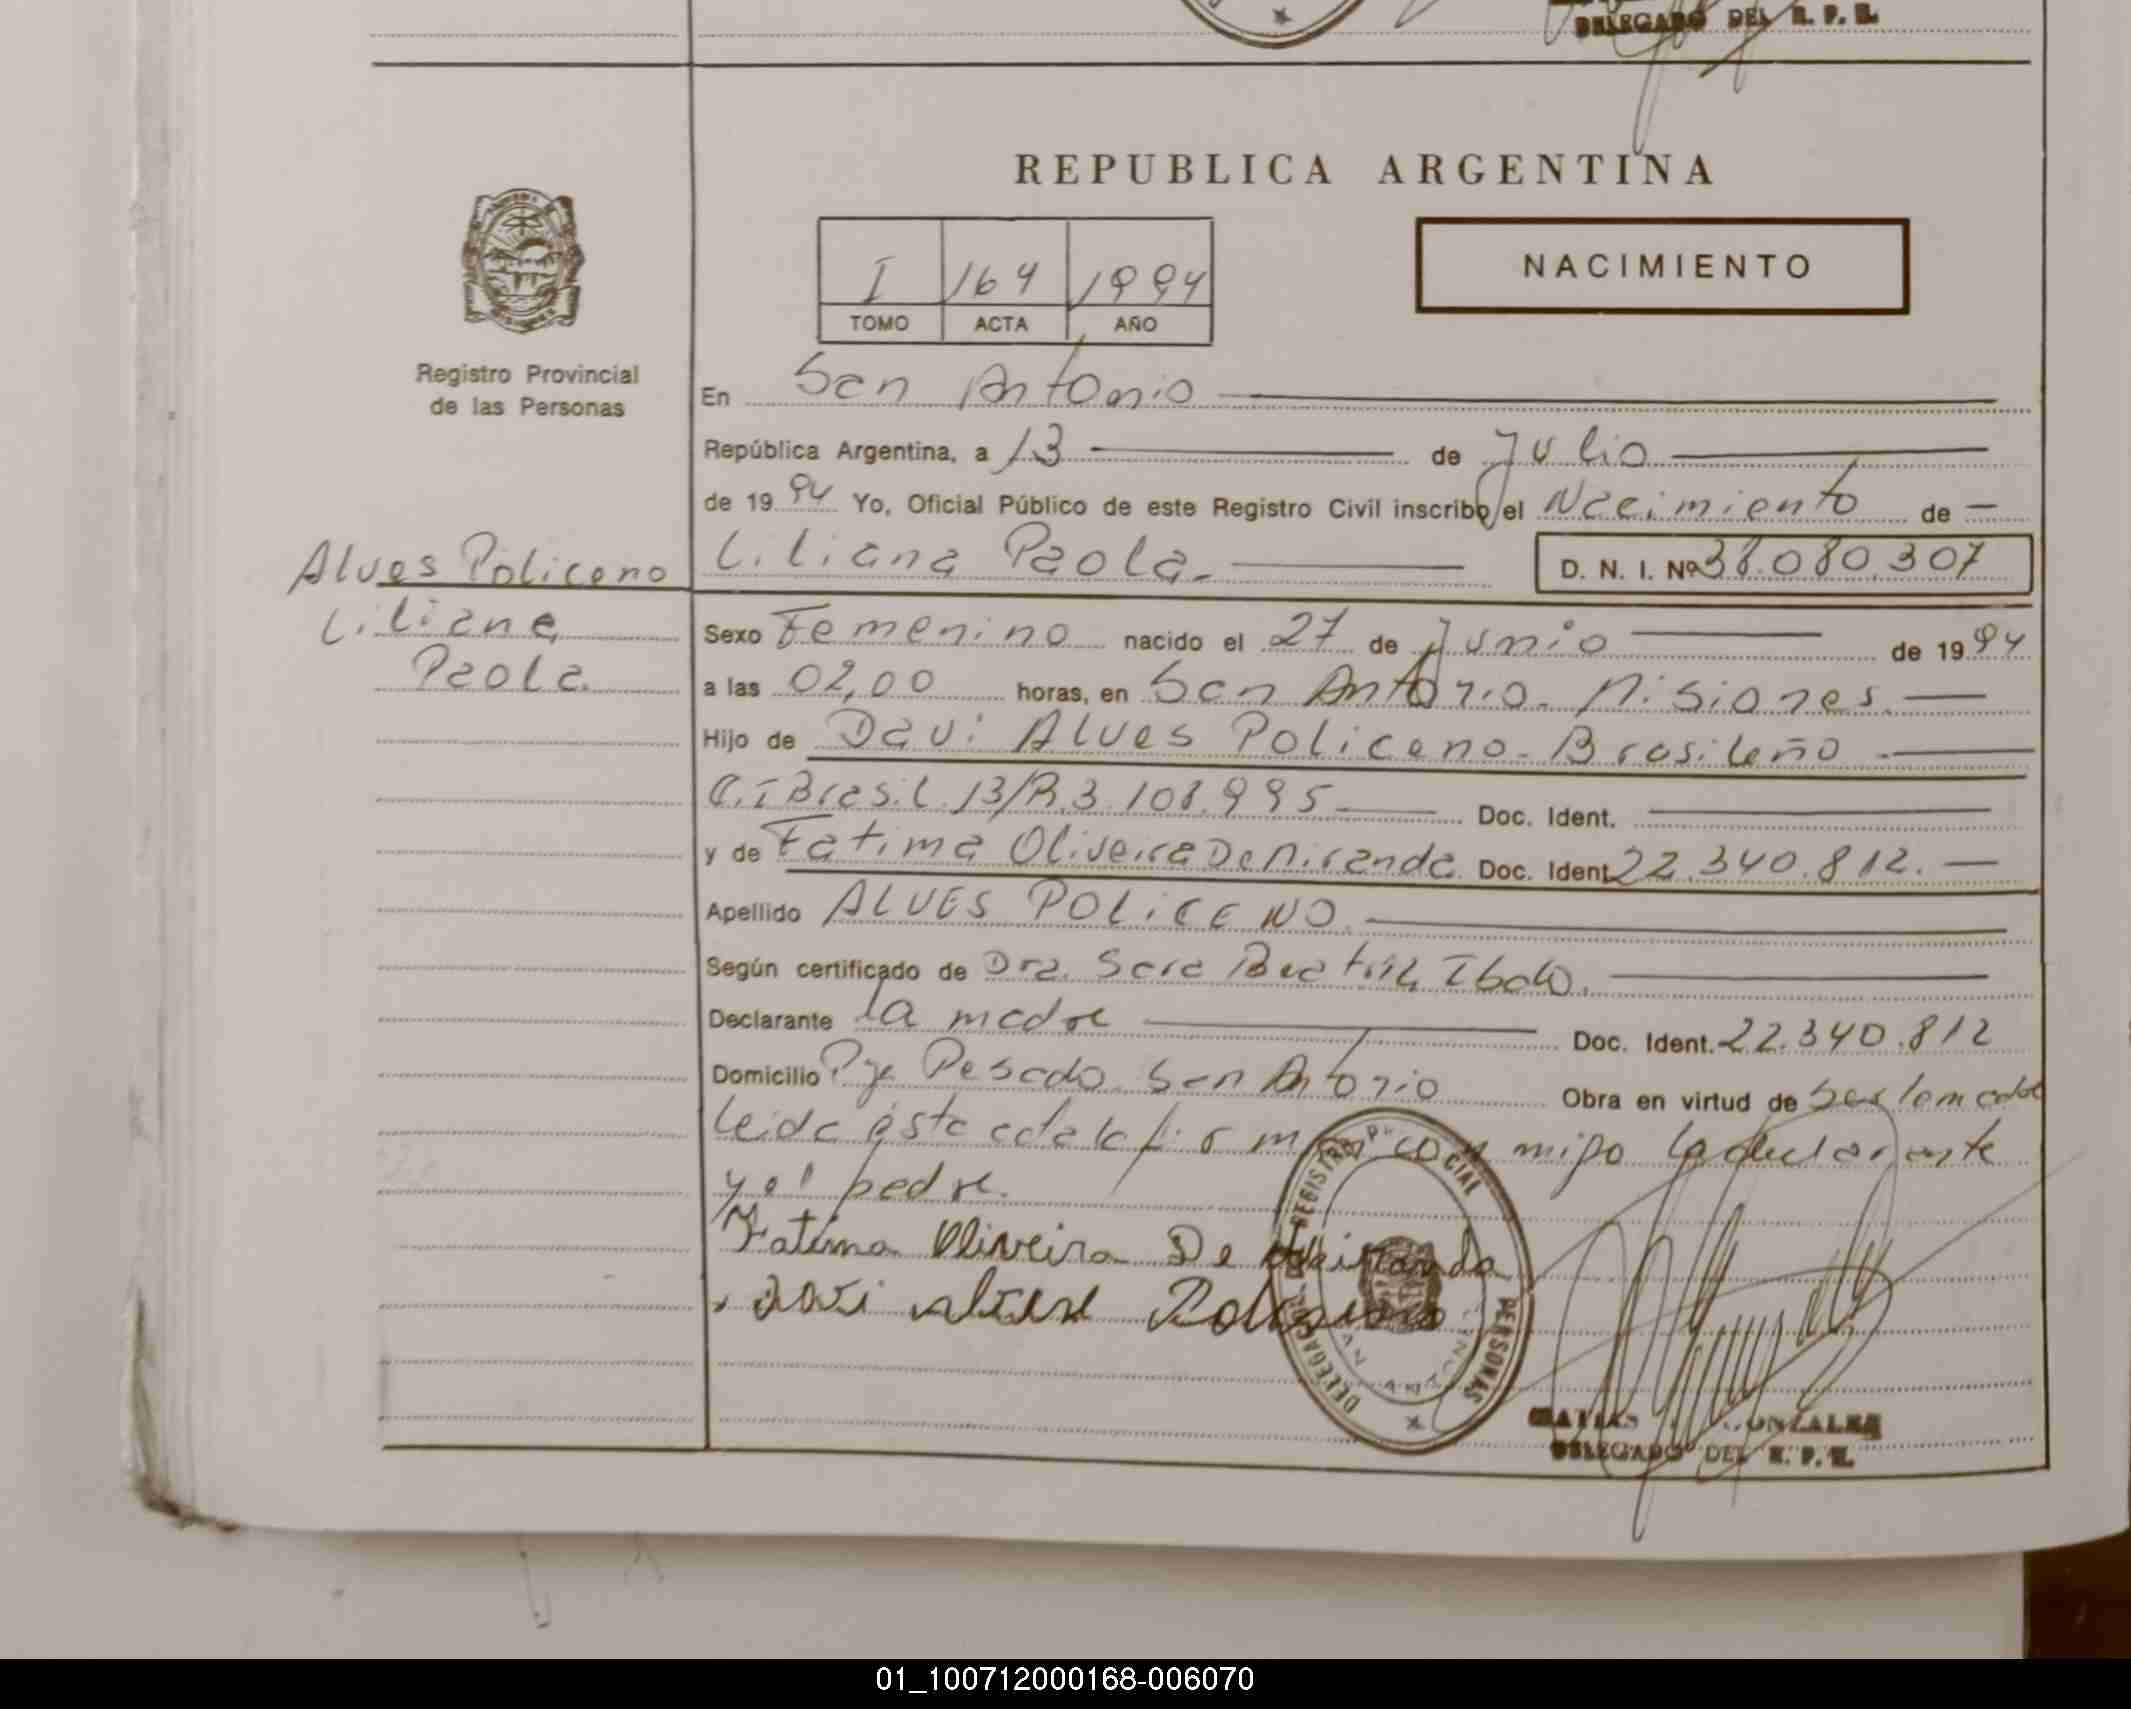 DELEGADO DEL R. P. E.
REPUBLICA ARGENTINA
I 164 1994
TOMO ACTA AÑO
NACIMIENTO
Registro Provincial
de las Personas
En San Antonio
República Argentina, a 13 de Julio
de 1994 Yo, Oficial Público de este Registro Civil inscribo el Nacimiento de
Alves Policeno
Liliana
Paola
Liliana Paola. D. N. I. Nº 38.080.307
Sexo Femenino nacido el 27 de Junio de 1994
a las 02,00 horas, en San Antonio. Misiones.
Hijo de Davi Alves Policeno. Brasileño.
C.I Brasil. 13/R.3.108.995 Doc. Ident.
y de Fatima Oliveira De Miranda Doc. Ident 22.340.812.
Apellido ALVES POLICENO.
Según certificado de Dra. Sara Beatriz
Declarante la madre Doc. Ident. 22.340.812
Domicilio Pje Pesado San Antonio Obra en virtud de ser la madre
leida ésta acta la firman conmigo la declarante
y el padre.
Fatima Oliveira De Miranda
Policeno
DELEGACION REGISTRO PROVINCIAL PERSONAS
SAN ANTONIO
MATIAS GONZALEZ
DELEGADO DEL R. P. E.
01_100712000168-006070